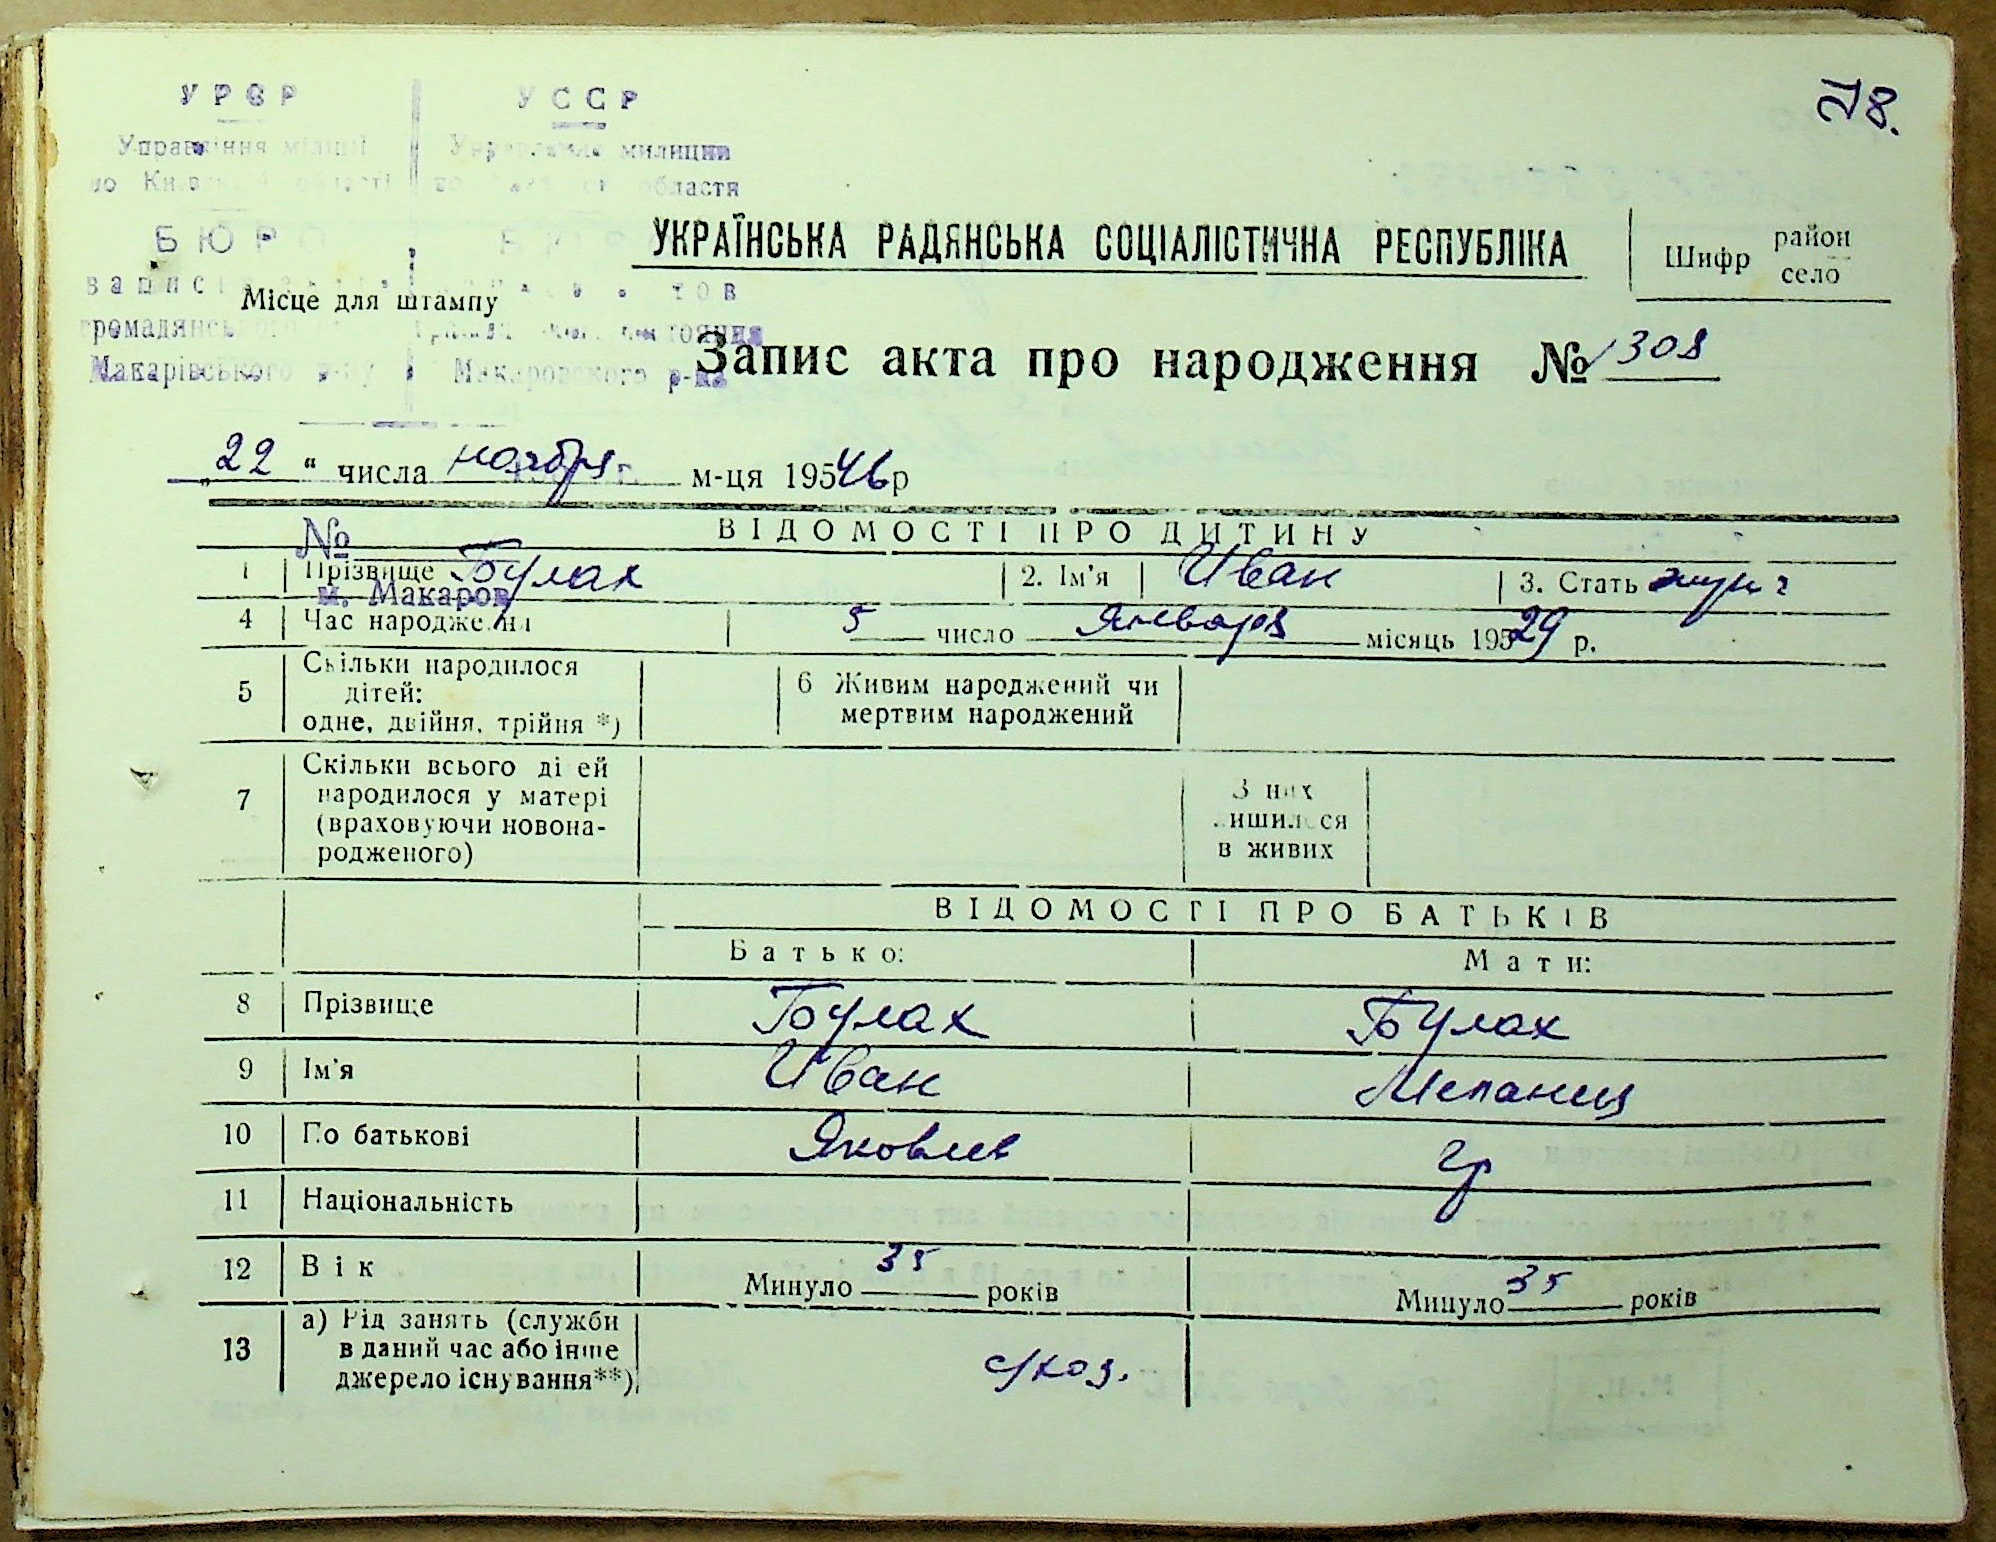 78.
УРСР УССР
Управління міліції Управление милиции
по Київській області по области
БЮРО БЮРО
Місце для штампу
громадянського
Макарівського р-ну Макаровского р-на
УКРАЇНСЬКА РАДЯНСЬКА СОЦІАЛІСТИЧНА РЕСПУБЛІКА
Шифр район
село
Запис акта про народження № 308
„ 22 “ числа ноября м-ця 195 46 р
ВІДОМОСТІ ПРО ДИТИНУ
№
1 Прізвище Булах 2. Ім'я Иван 3. Стать
м. Макаров
4 Час народження 5 число Января місяць 195 29 р.
5 Скільки народилося
дітей:
одне, двійня, трійня *)
6 Живим народжений чи
мертвим народжений
7 Скільки всього дітей
народилося у матері
(враховуючи новона-
родженого)
З них
лишилося
в живих
ВІДОМОСТІ ПРО БАТЬКІВ
Батько: Мати:
8 Прізвище Булах Булах
9 Ім'я Иван
10 По батькові Яковлев гр
11 Національність
12 Вік Минуло 35 років Минуло 35 років
13 а) Рід занять (служби
в даний час або інше
джерело існування**)
с/хоз.